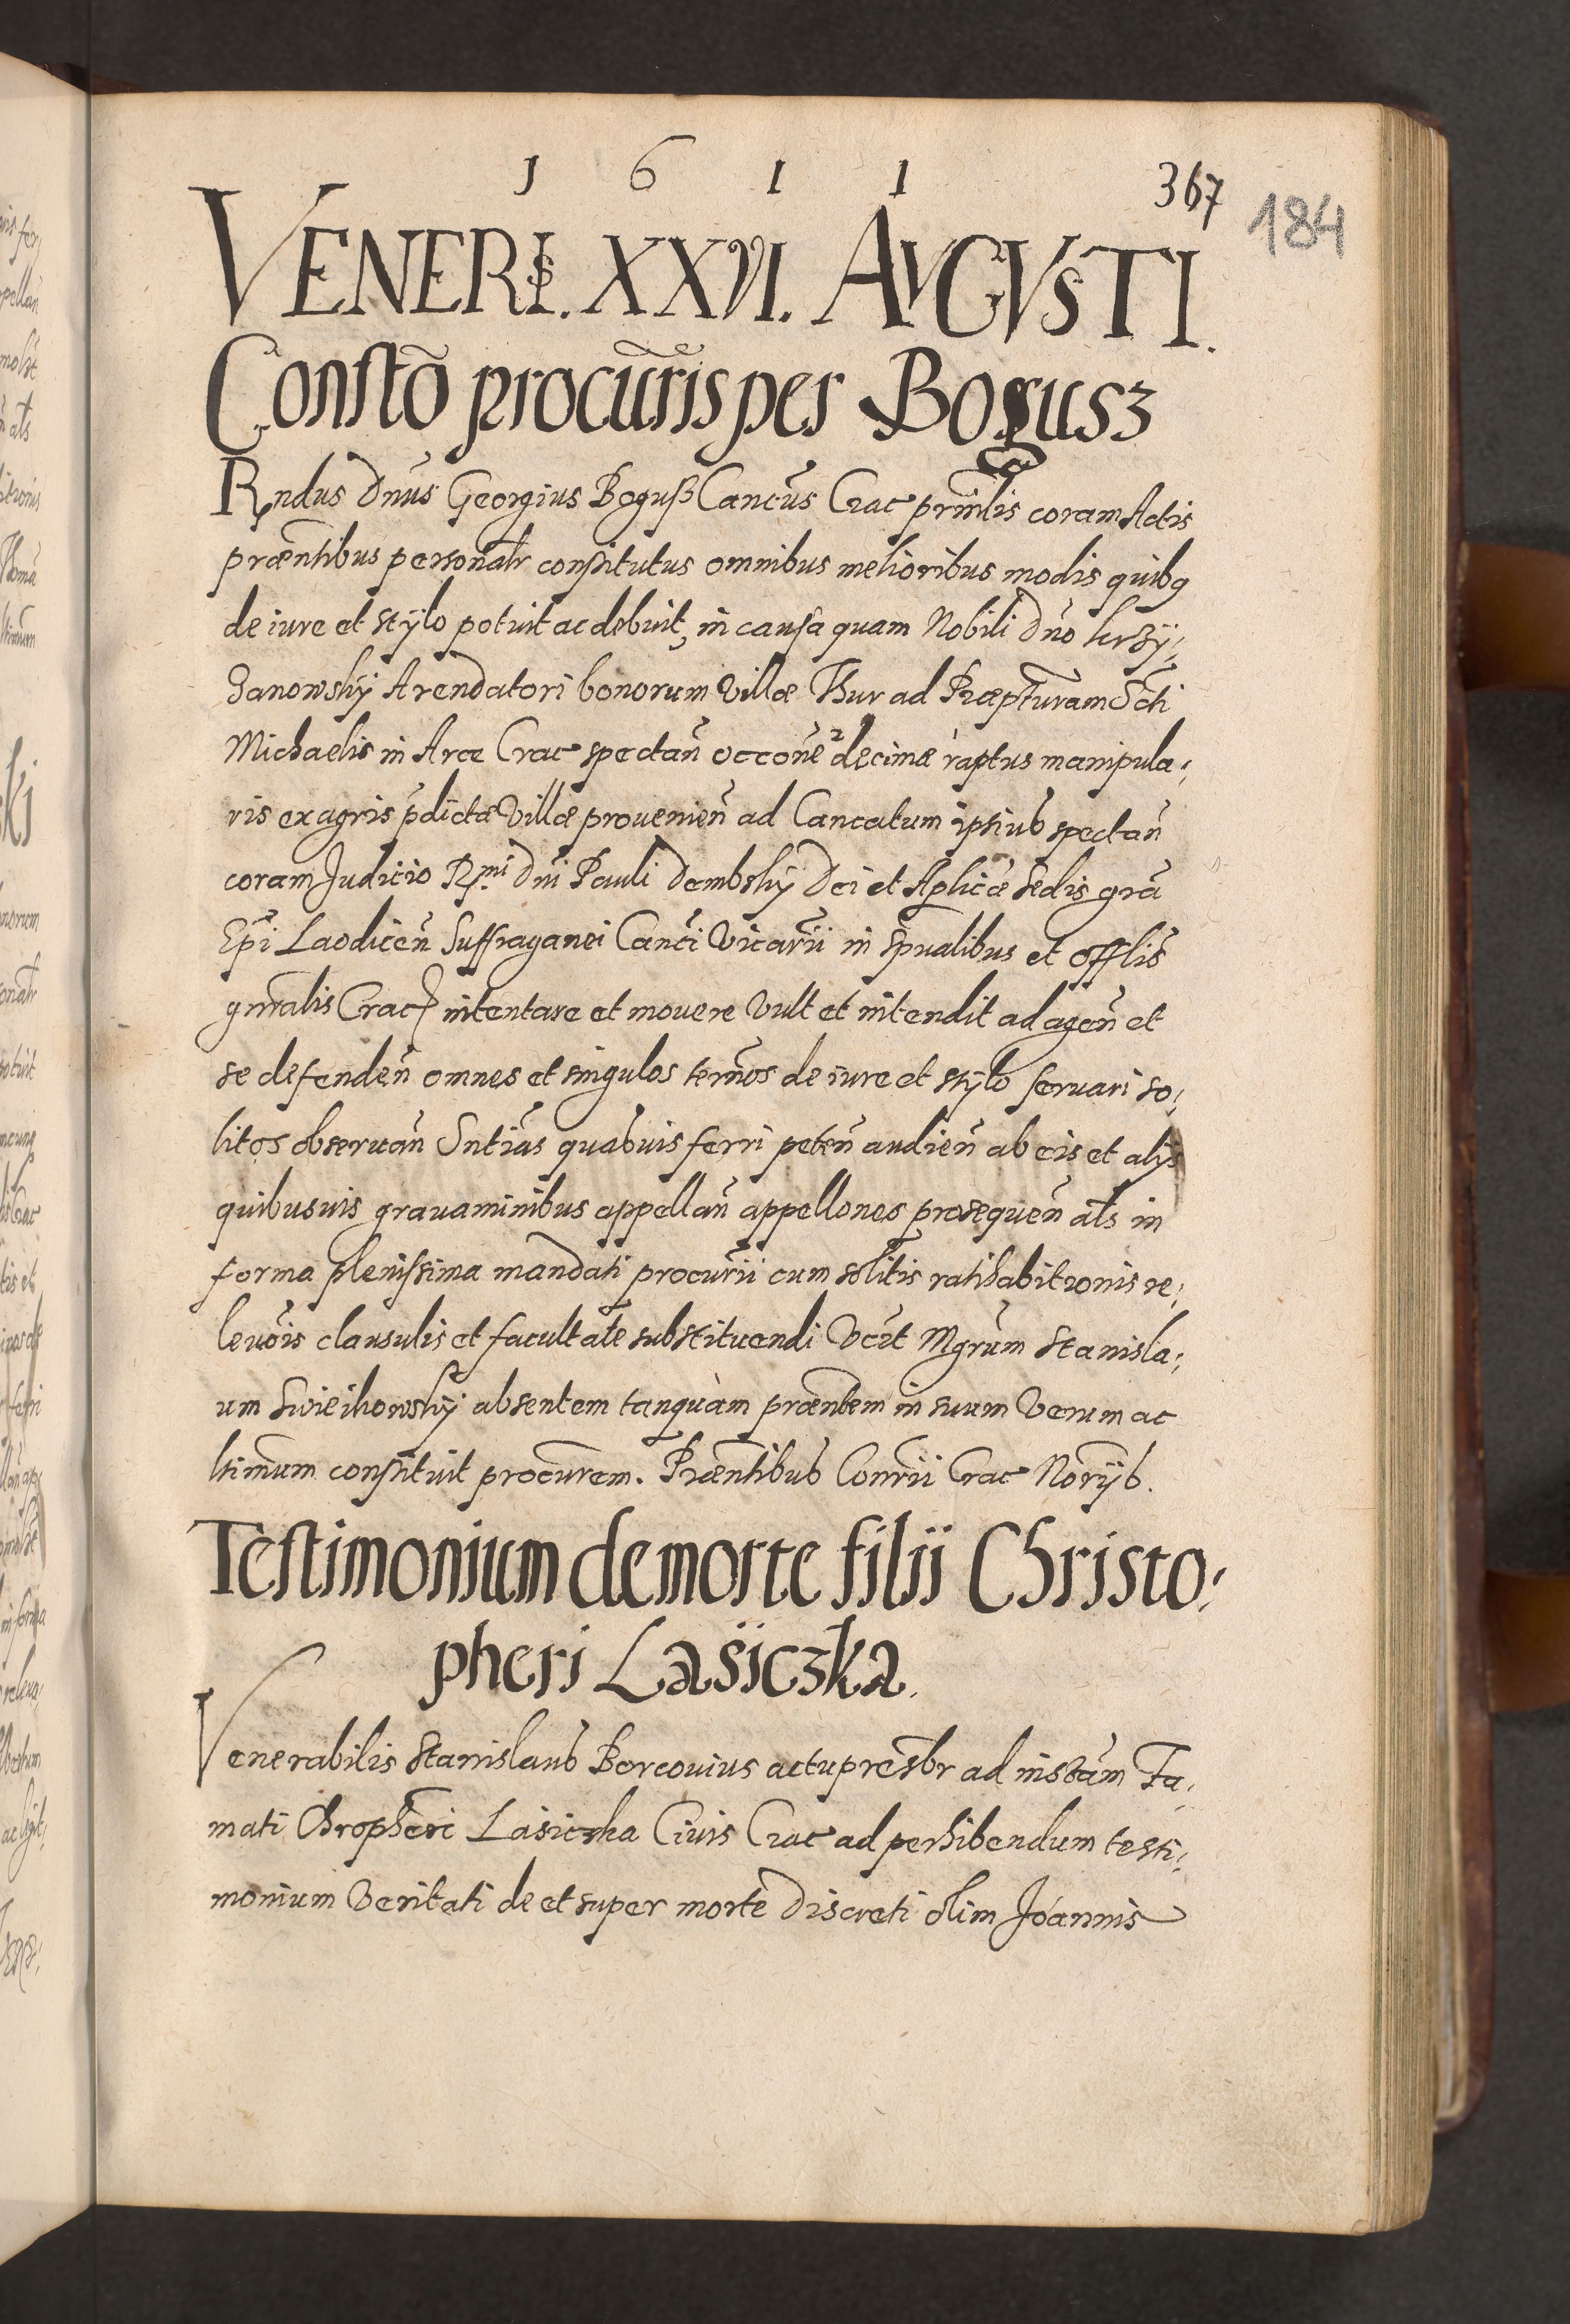 1611
367
184
VENERIS. XXVI. AVGVSTI.
Constõ procũris per Bogusz
Rndus Dnũs Georgius Boguß Cancũs Crac prinĩlis coram Actis
præntibus personalr constitutus omnibus melioribus modis quibq
de iure et stÿlo potuit ac debuit, in causa quam Nobili Dno
Janowskÿ Arendatori bonorum Villæ Thur ad Præptũram Scti
Michaelis in Arce Crac spectañ occõne decimæ raptus manipula⸗
ris ex agris p̃dictæ Villæ prouenieñ ad Cancatum ipsius spectañ
coram Judicio Rmi Dni Pauli Dembskÿ Dei et Aplicæ Sedis grã
Epĩ Laodiceñ Suffraganei Canci Vicarii in Spũalibus et offlis
gnralis Crac intentare et mouere Vult et intendit ad ageñ et
se defendeñ omnes et singulos termõs de iure et stÿlo seruari so⸗
litos obseruañ Sntias quasuis ferri peteñ audieñ ab eis et alijs
quibusuis grauaminibus appellañ appellones prosequeñ als in
forma plenissima mandati procurii cum solitis ratihabitionis re⸗
leuõis clausulis et facultate substituendi Vcrt Mgrum Stanisla⸗
um absentem tanquàm præntem in suum Verum ac
ltimum constituit procurem. Præntibus Conrii Crac Norijs.
Testimonium de morte filii Christo⸗
pheri Lasiczka.
Venerabilis Stanislaus Borcouius actu presbr ad instãm Fa⸗
mati Chropheri Lasiczka Ciuis Crac ad perhibendum testi⸗
monium Veritati de et super morte Discreti olim Joannis